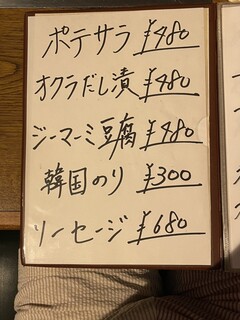 ポテサラ ¥480
オクラだし漬 ¥480
ジーマーミ豆腐 ¥480
韓国のり ¥300
ソーセージ ¥680